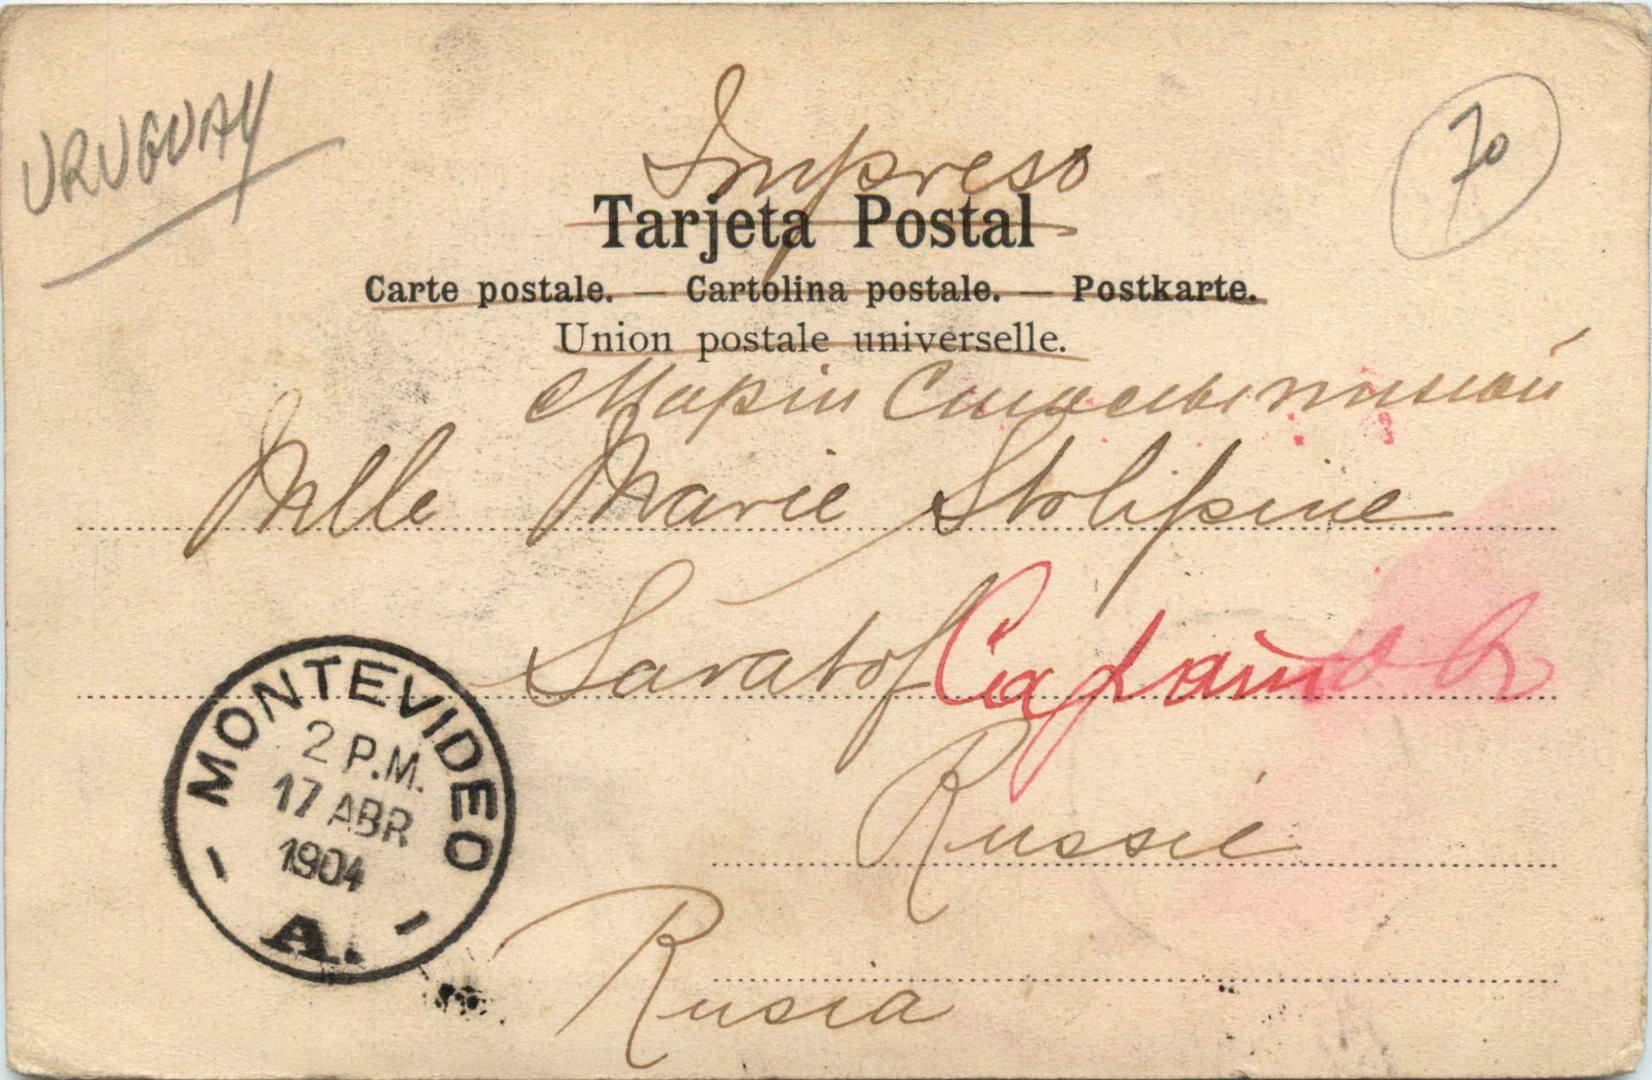 URUGUAY
70
Impreso
Tarjeta Postal
Carte postale. — Cartolina postale. — Postkarte.
Union postale universelle.
Маріи
Mlle Marie Stolipine
Saratof
Russie
Rusia
MONTEVIDEO
2 P.M.
17 ABR
1904
A.